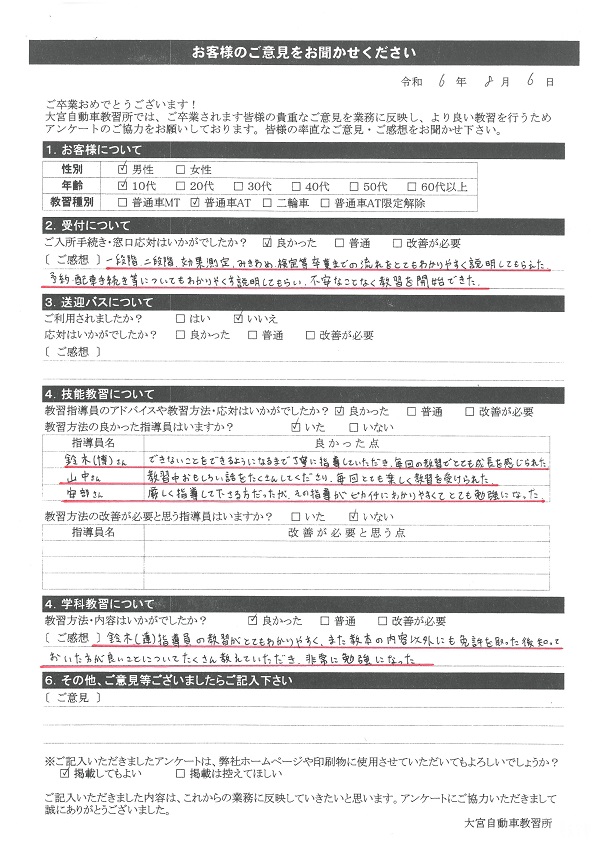 お客様のご意見をお聞かせください
令和 6 年 8 月 6 日
ご卒業おめでとうございます！
大宮自動車教習所では、ご卒業されます皆様の貴重なご意見を業務に反映し、より良い教習を行うため
アンケートのご協力をお願いしております。皆様の率直なご意見・ご感想をお聞かせ下さい。
1. お客様について
性別 ☑ 男性 □ 女性
年齢 ☑ 10代 □ 20代 □ 30代 □ 40代 □ 50代 □ 60代以上
教習種別 □ 普通車MT ☑ 普通車AT □ 二輪車 □ 普通車AT限定解除
2. 受付について
ご入所手続き・窓口応対はいかがでしたか？ ☑ 良かった □ 普通 □ 改善が必要
〔 ご感想 〕 一段階、二段階、効果測定、みきわめ、検定等卒業までの流れをとてもわかりやすく説明してもらえた。
予約・配車手続き等についてもわかりやすく説明してもらい、不安なことなく教習を開始できた。
3. 送迎バスについて
ご利用されましたか？ □ はい ☑ いいえ
応対はいかがでしたか？ □ 良かった □ 普通 □ 改善が必要
〔 ご感想 〕
4. 技能教習について
教習指導員のアドバイスや教習方法・応対はいかがでしたか？ ☑ 良かった □ 普通 □ 改善が必要
教習方法の良かった指導員はいますか？ ☑ いた □ いない
指導員名 良かった点
鈴木(博)さん できないことをできるようになるまで丁寧に指導していただき、毎回の教習でとても成長を感じられた
山中さん 教習中おもしろい話をたくさんしてくださり、毎回とても楽しく教習を受けられた。
安部さん 厳しく指導して下さる方だったが、その指導がピカイチにわかりやすくてとても勉強になった。
教習方法の改善が必要と思う指導員はいますか？ □ いた ☑ いない
指導員名 改善が必要と思う点
4. 学科教習について
教習方法・内容はいかがでしたか？ ☑ 良かった □ 普通 □ 改善が必要
〔 ご感想 〕 鈴木(蓮)指導員の教習がとてもわかりやすく、また教本の内容以外にも免許を取った後知って
おいた方が良いことについてたくさん教えていただき、非常に勉強になった
6. その他、ご意見等ございましたらご記入下さい
〔 ご意見 〕
※ご記入いただきましたアンケートは、弊社ホームページや印刷物に使用させていただいてもよろしいでしょうか？
☑ 掲載してもよい □ 掲載は控えてほしい
ご記入いただきました内容は、これからの業務に反映していきたいと思います。アンケートにご協力いただきまして
誠にありがとうございました。
大宮自動車教習所